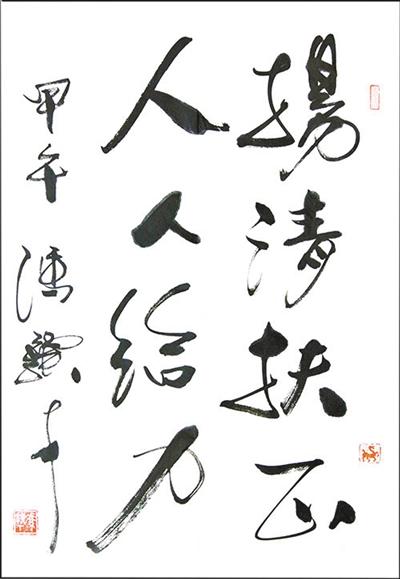 揚清扶正
人人给力
甲午